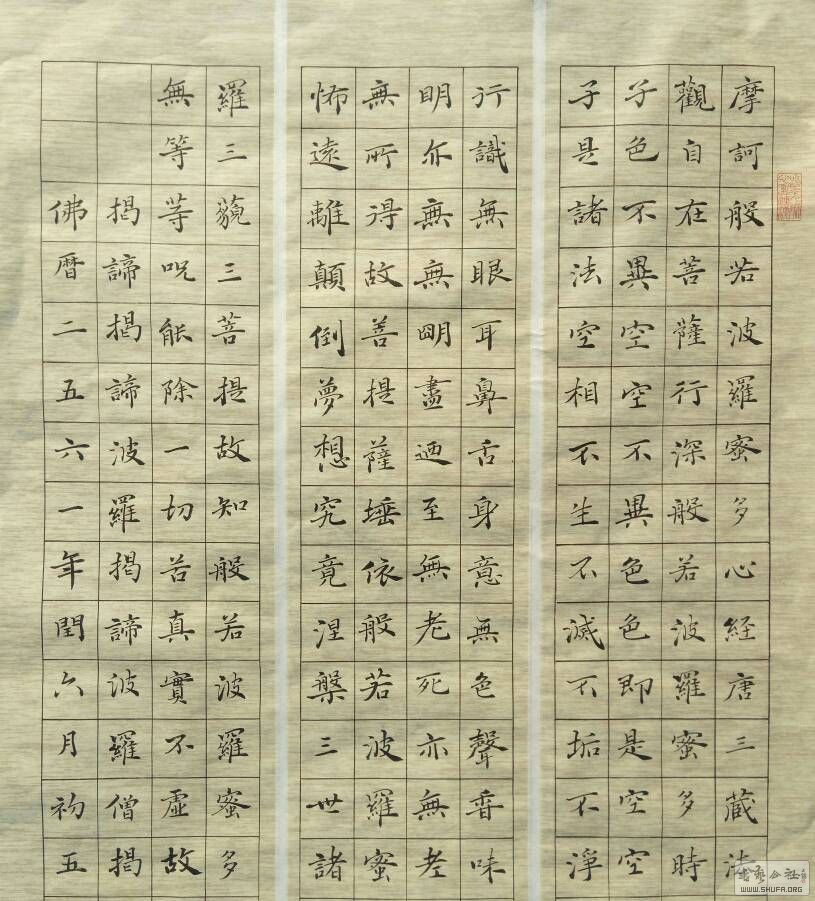 摩訶般若波羅蜜多心経唐三蔵法
觀自在菩薩行深般若波羅蜜多時
子色不異空空不異色色即是空空
子是諸法空相不生不滅不垢不淨
行識無眼耳鼻舌身意無色聲香味
明亦無無明盡迺至無老死亦無老
無所得故善提薩埵依般若波羅蜜
怖遠離顛倒夢想究竟涅槃三世諸
羅三藐三菩提故知般若波羅蜜多
無等等呪能除一切苦真實不虛故
揭諦揭諦波羅揭諦波羅僧揭
佛暦二五六一年閏六月初五
WWW.SHUFA.ORG